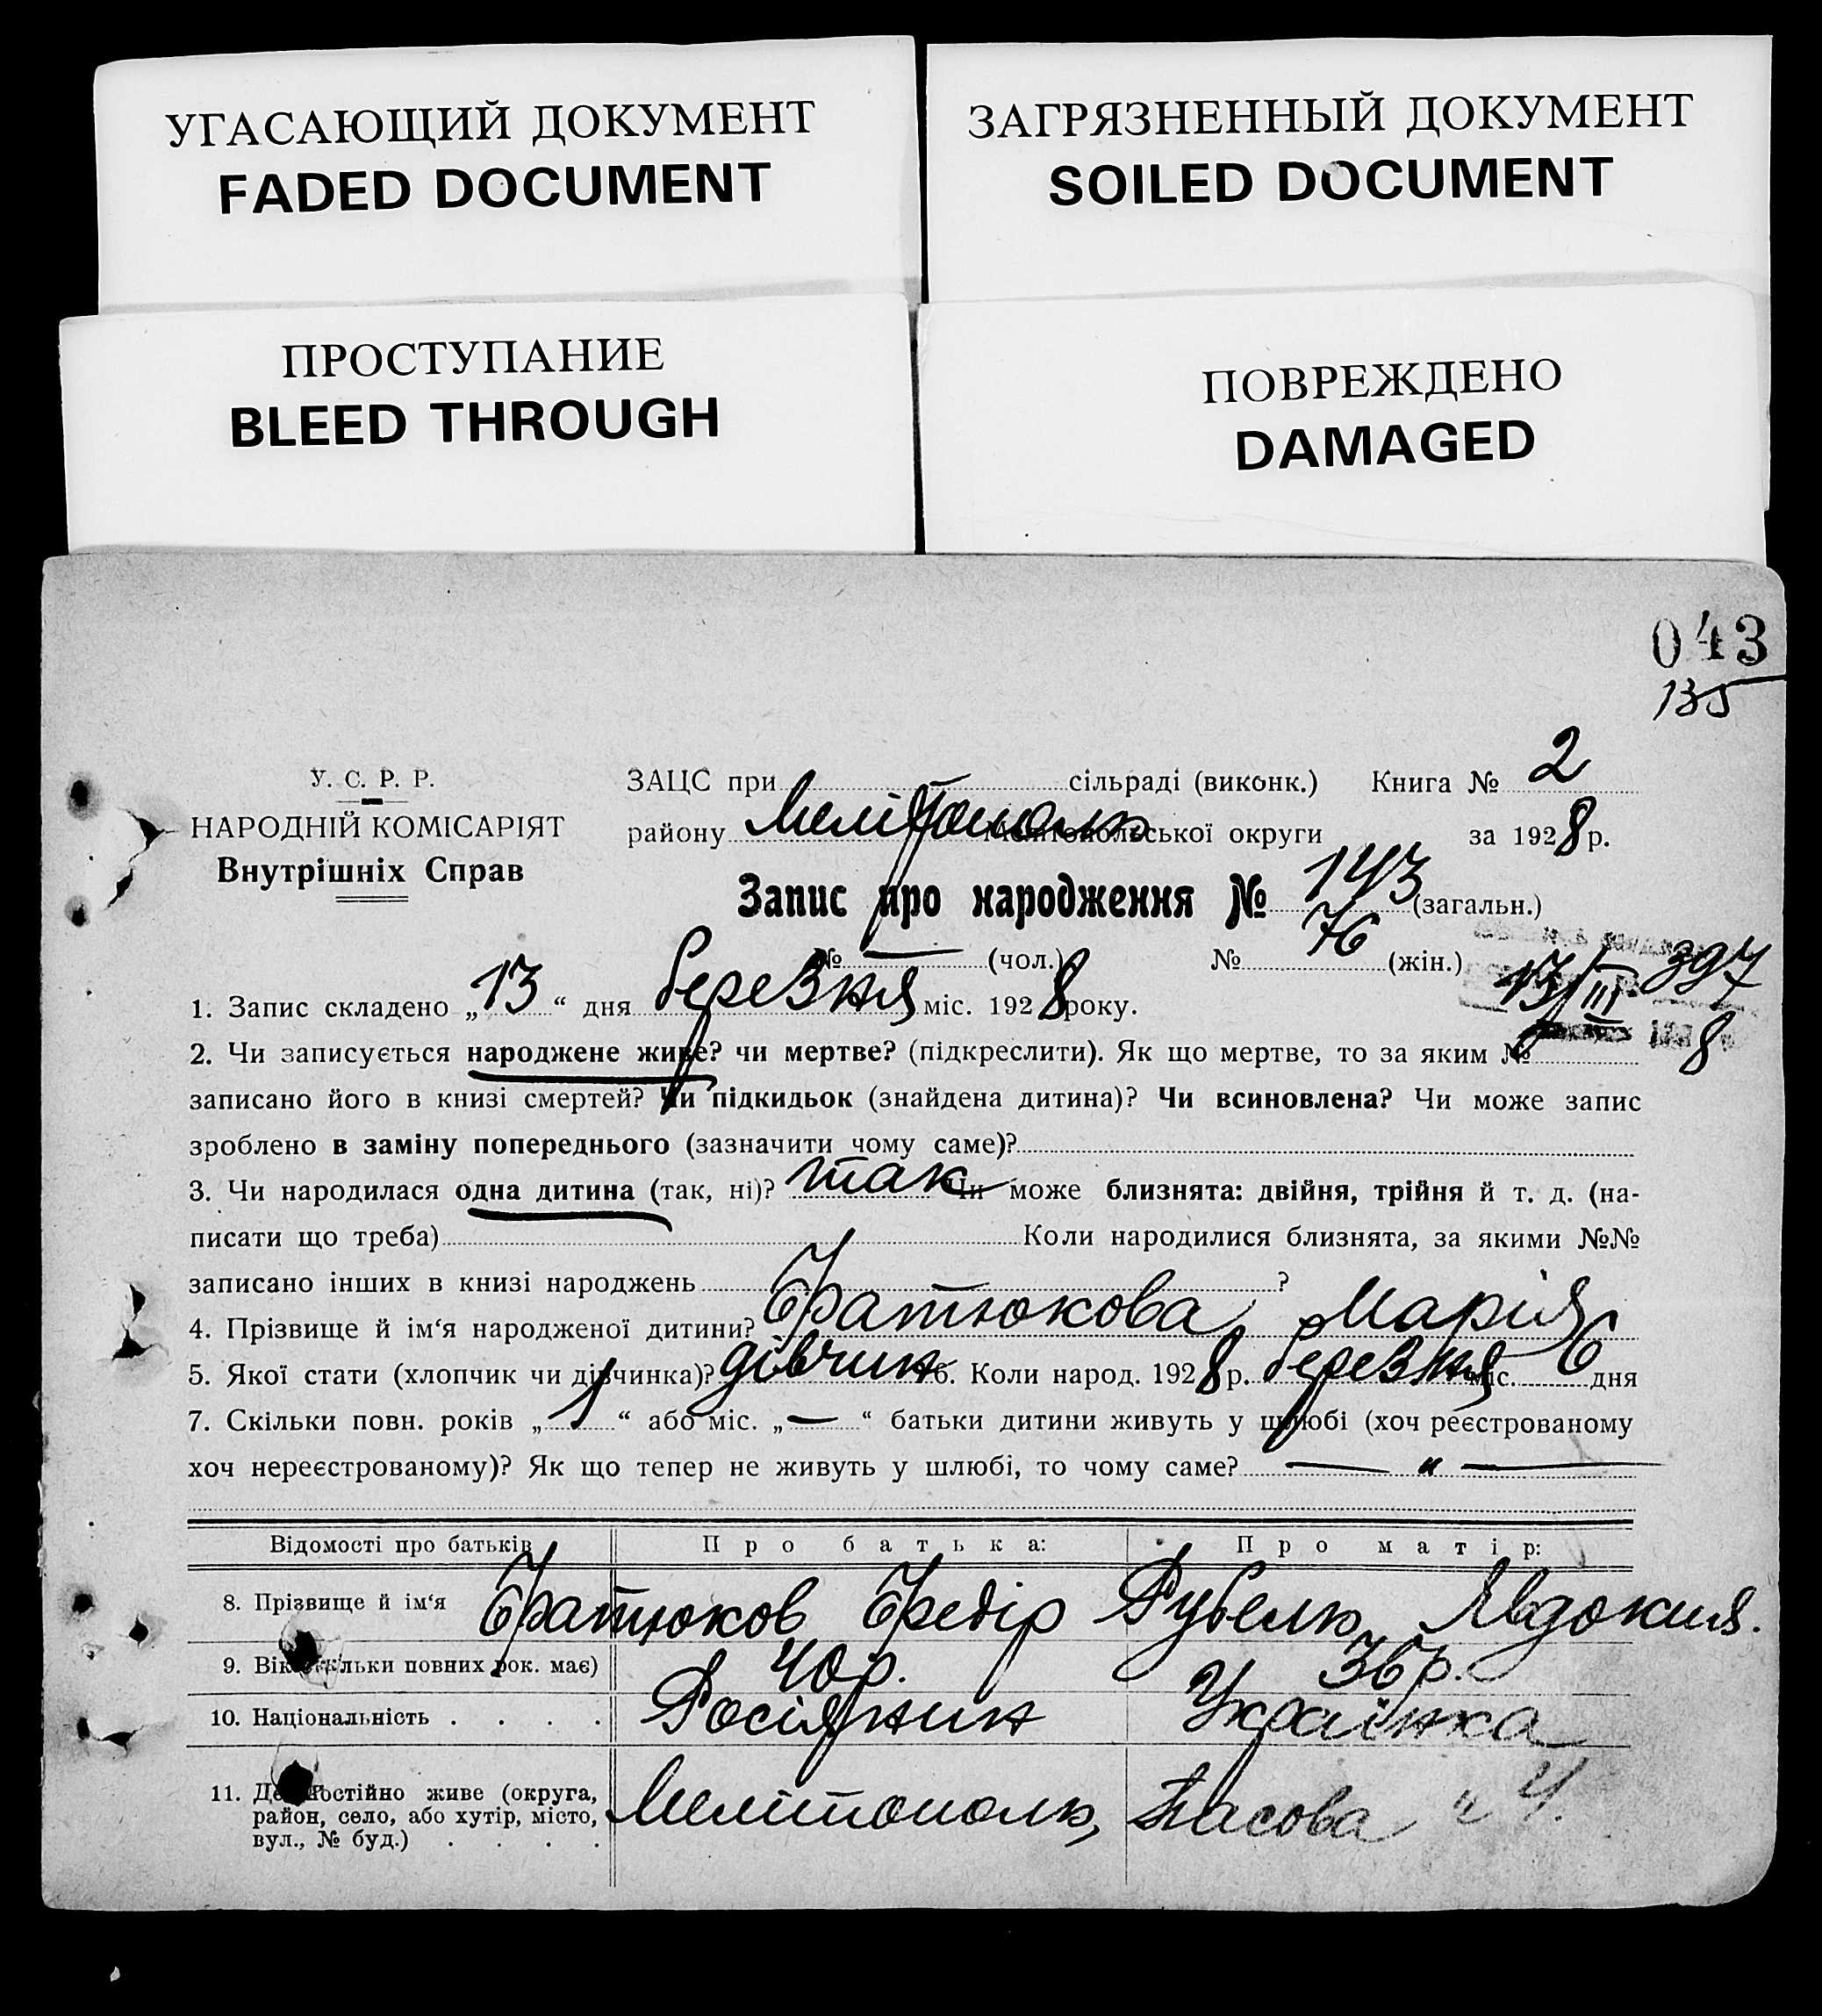 УГАСАЮЩИЙ ДОКУМЕНТ
FADED DOCUMENT
ЗАГРЯЗНЕННЫЙ ДОКУМЕНТ
SOILED DOCUMENT
ПРОСТУПАНИЕ
BLEED THROUGH
ПОВРЕЖДЕНО
DAMAGED
043
135
У. С. Р. Р.
НАРОДНІЙ КОМІСАРІЯТ
Внутрішніх Справ
ЗАЦС при сільраді (виконк.) Книга № 2
району Мелітополь Мелітопольської округи за 1928 р.
Запис про народження № 143 (загальн.)
№ — (чол.) № 76 (жін.)
13/III 397
8
1. Запис складено „13“ дня березня міс. 1928 року.
2. Чи записується народжене живе? чи мертве? (підкреслити). Як що мертве, то за яким №
записано його в книзі смертей? Чи підкидьок (знайдена дитина)? Чи всиновлена? Чи може запис
зроблено в заміну попереднього (зазначити чому саме)?
3. Чи народилася одна дитина (так, ні)? так Чи може близнята: двійня, трійня й т. д. (на-
писати що треба) Коли народилися близнята, за якими №№
записано інших в книзі народжень ?
4. Прізвище й ім‘я народженої дитини? Фатюкова Марія
5. Якої стати (хлопчик чи дівчинка)? дівчин 6. Коли народ. 1928 р. березня міс. 6 дня
7. Скільки повн. років „1“ або міс. „—“ батьки дитини живуть у шлюбі (хоч реєстрованому
хоч нереєстрованому)? Як що тепер не живуть у шлюбі, то чому саме? — „ —
Відомості про батьків Про батька: Про матір:
8. Прізвище й ім‘я Фатюков Федір Рубель Явдокия.
9. Вік скільки повних рок. має) 40 р. 36 р.
10. Національність . . . . Росіянин Українка
11. Де постійно живе (округа,
район, село, або хутір, місто,
вул., № буд.) . . . . Мелітополь, 4.